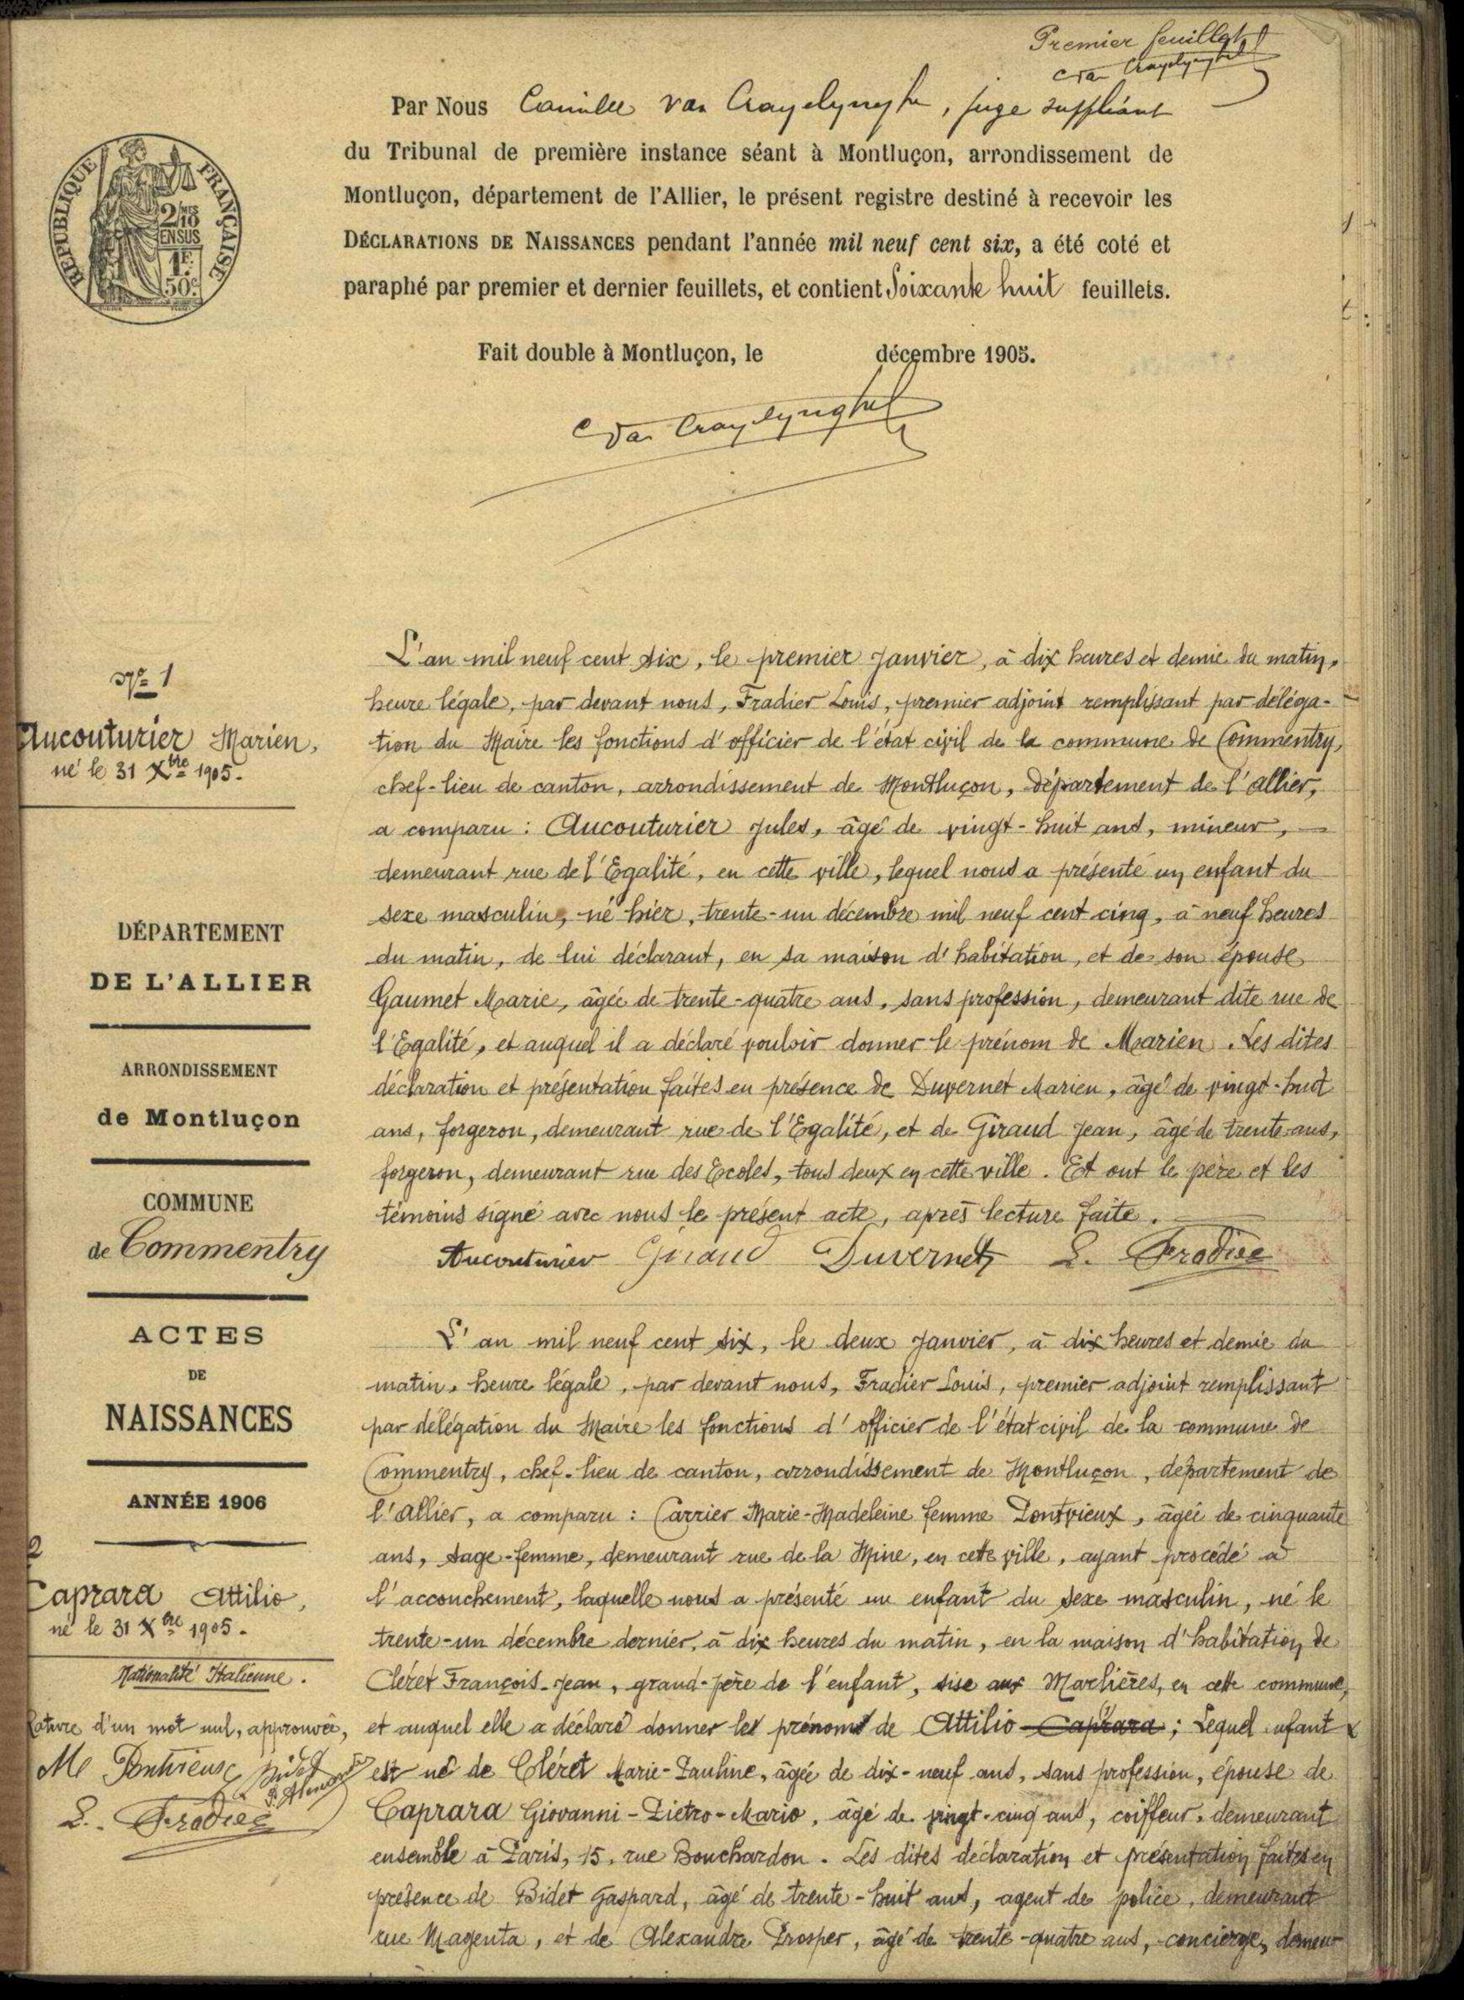 Premier feuillet
C Van Crayelynghe
Par Nous Camille van Crayelynghe, juge suppléant
du Tribunal de première instance séant à Montluçon, arrondissement de
Montluçon, département de l'Allier, le présent registre destiné à recevoir les
DÉCLARATIONS DE NAISSANCES pendant l'année mil neuf cent six, a été coté et
paraphé par premier et dernier feuillets, et contient Soixante huit feuillets.
Fait double à Montluçon, le décembre 1905.
C Van Crayelynghe
RÉPUBLIQUE FRANÇAISE
2/10
EN SUS
1F
50c
N° 1
Aucouturier Marien,
né le 31 Xbre 1905.
L'an mil neuf cent six, le premier Janvier, à dix heures et demie du matin,
heure légale, par devant nous, Fradier Louis, premier adjoint remplissant par déléga-
tion du Maire les fonctions d'officier de l'état civil de la commune de Commentry,
chef-lieu de canton, arrondissement de Montluçon, département de l'allier,
a comparu : Aucouturier Jules, âgé de vingt-huit ans, mineur,
demeurant rue de l'Egalité, en cette ville, lequel nous a présenté un enfant du
sexe masculin, né hier, trente-un décembre mil neuf cent cinq, à neuf heures
du matin, de lui déclarant, en sa maison d'habitation, et de son épouse
Gaumet Marie, âgée de trente-quatre ans, sans profession, demeurant dite rue de
l'Egalité, et auquel il a déclaré vouloir donner le prénom de Marien. Les dites
déclaration et présentation faites en présence de Duvernet Marien, âgé de vingt-huit
ans, forgeron, demeurant rue de l'Egalité, et de Giraud Jean, âgé de trente ans,
forgeron, demeurant rue des Ecoles, tous deux en cette ville. Et ont le père et les
témoins signé avec nous le présent acte, après lecture faite.
Aucouturier Giraud Duvernet L. Fradier
DÉPARTEMENT
DE L'ALLIER
ARRONDISSEMENT
de Montluçon
COMMUNE
de Commentry
ACTES
DE
NAISSANCES
ANNÉE 1906
2
Caprara Attilio,
né le 31 Xbre 1905.
Nationalité Italienne.
Rature d'un mot nul, approuvée,
Me Pontvieux Bidet
P. Alexandre
L. Fradier
L'an mil neuf cent six, le deux Janvier, à dix heures et demie du
matin, heure légale, par devant nous, Fradier Louis, premier adjoint remplissant
par délégation du Maire les fonctions d'officier de l'état civil de la commune de
Commentry, chef-lieu de canton, arrondissement de Montluçon, département de
l'allier, a comparu : Carrier Marie-Madeleine femme Pontvieux, âgée de cinquante
ans, sage-femme, demeurant rue de la Mine, en cette ville, ayant procédé à
l'accouchement, laquelle nous a présenté un enfant du sexe masculin, né le
trente-un décembre dernier, à dix heures du matin, en la maison d'habitation de
Cléret François-Jean, grand-père de l'enfant, sise aux Marlières, en cette commune,
et auquel elle a déclaré donner les prénoms de Attilio Caprara ; Lequel enfant
est né de Cléret Marie-Pauline, âgée de dix-neuf ans, sans profession, épouse de
Caprara Giovanni-Pietro-Mario, âgé de vingt-cinq ans, coiffeur, demeurant
ensemble à Paris, 15, rue Bouchardon. Les dites déclaration et présentation faites en
présence de Bidet Gaspard, âgé de trente-huit ans, agent de police, demeurant
rue Magenta, et de Alexandre Prosper, âgé de trente-quatre ans, concierge, demeu-